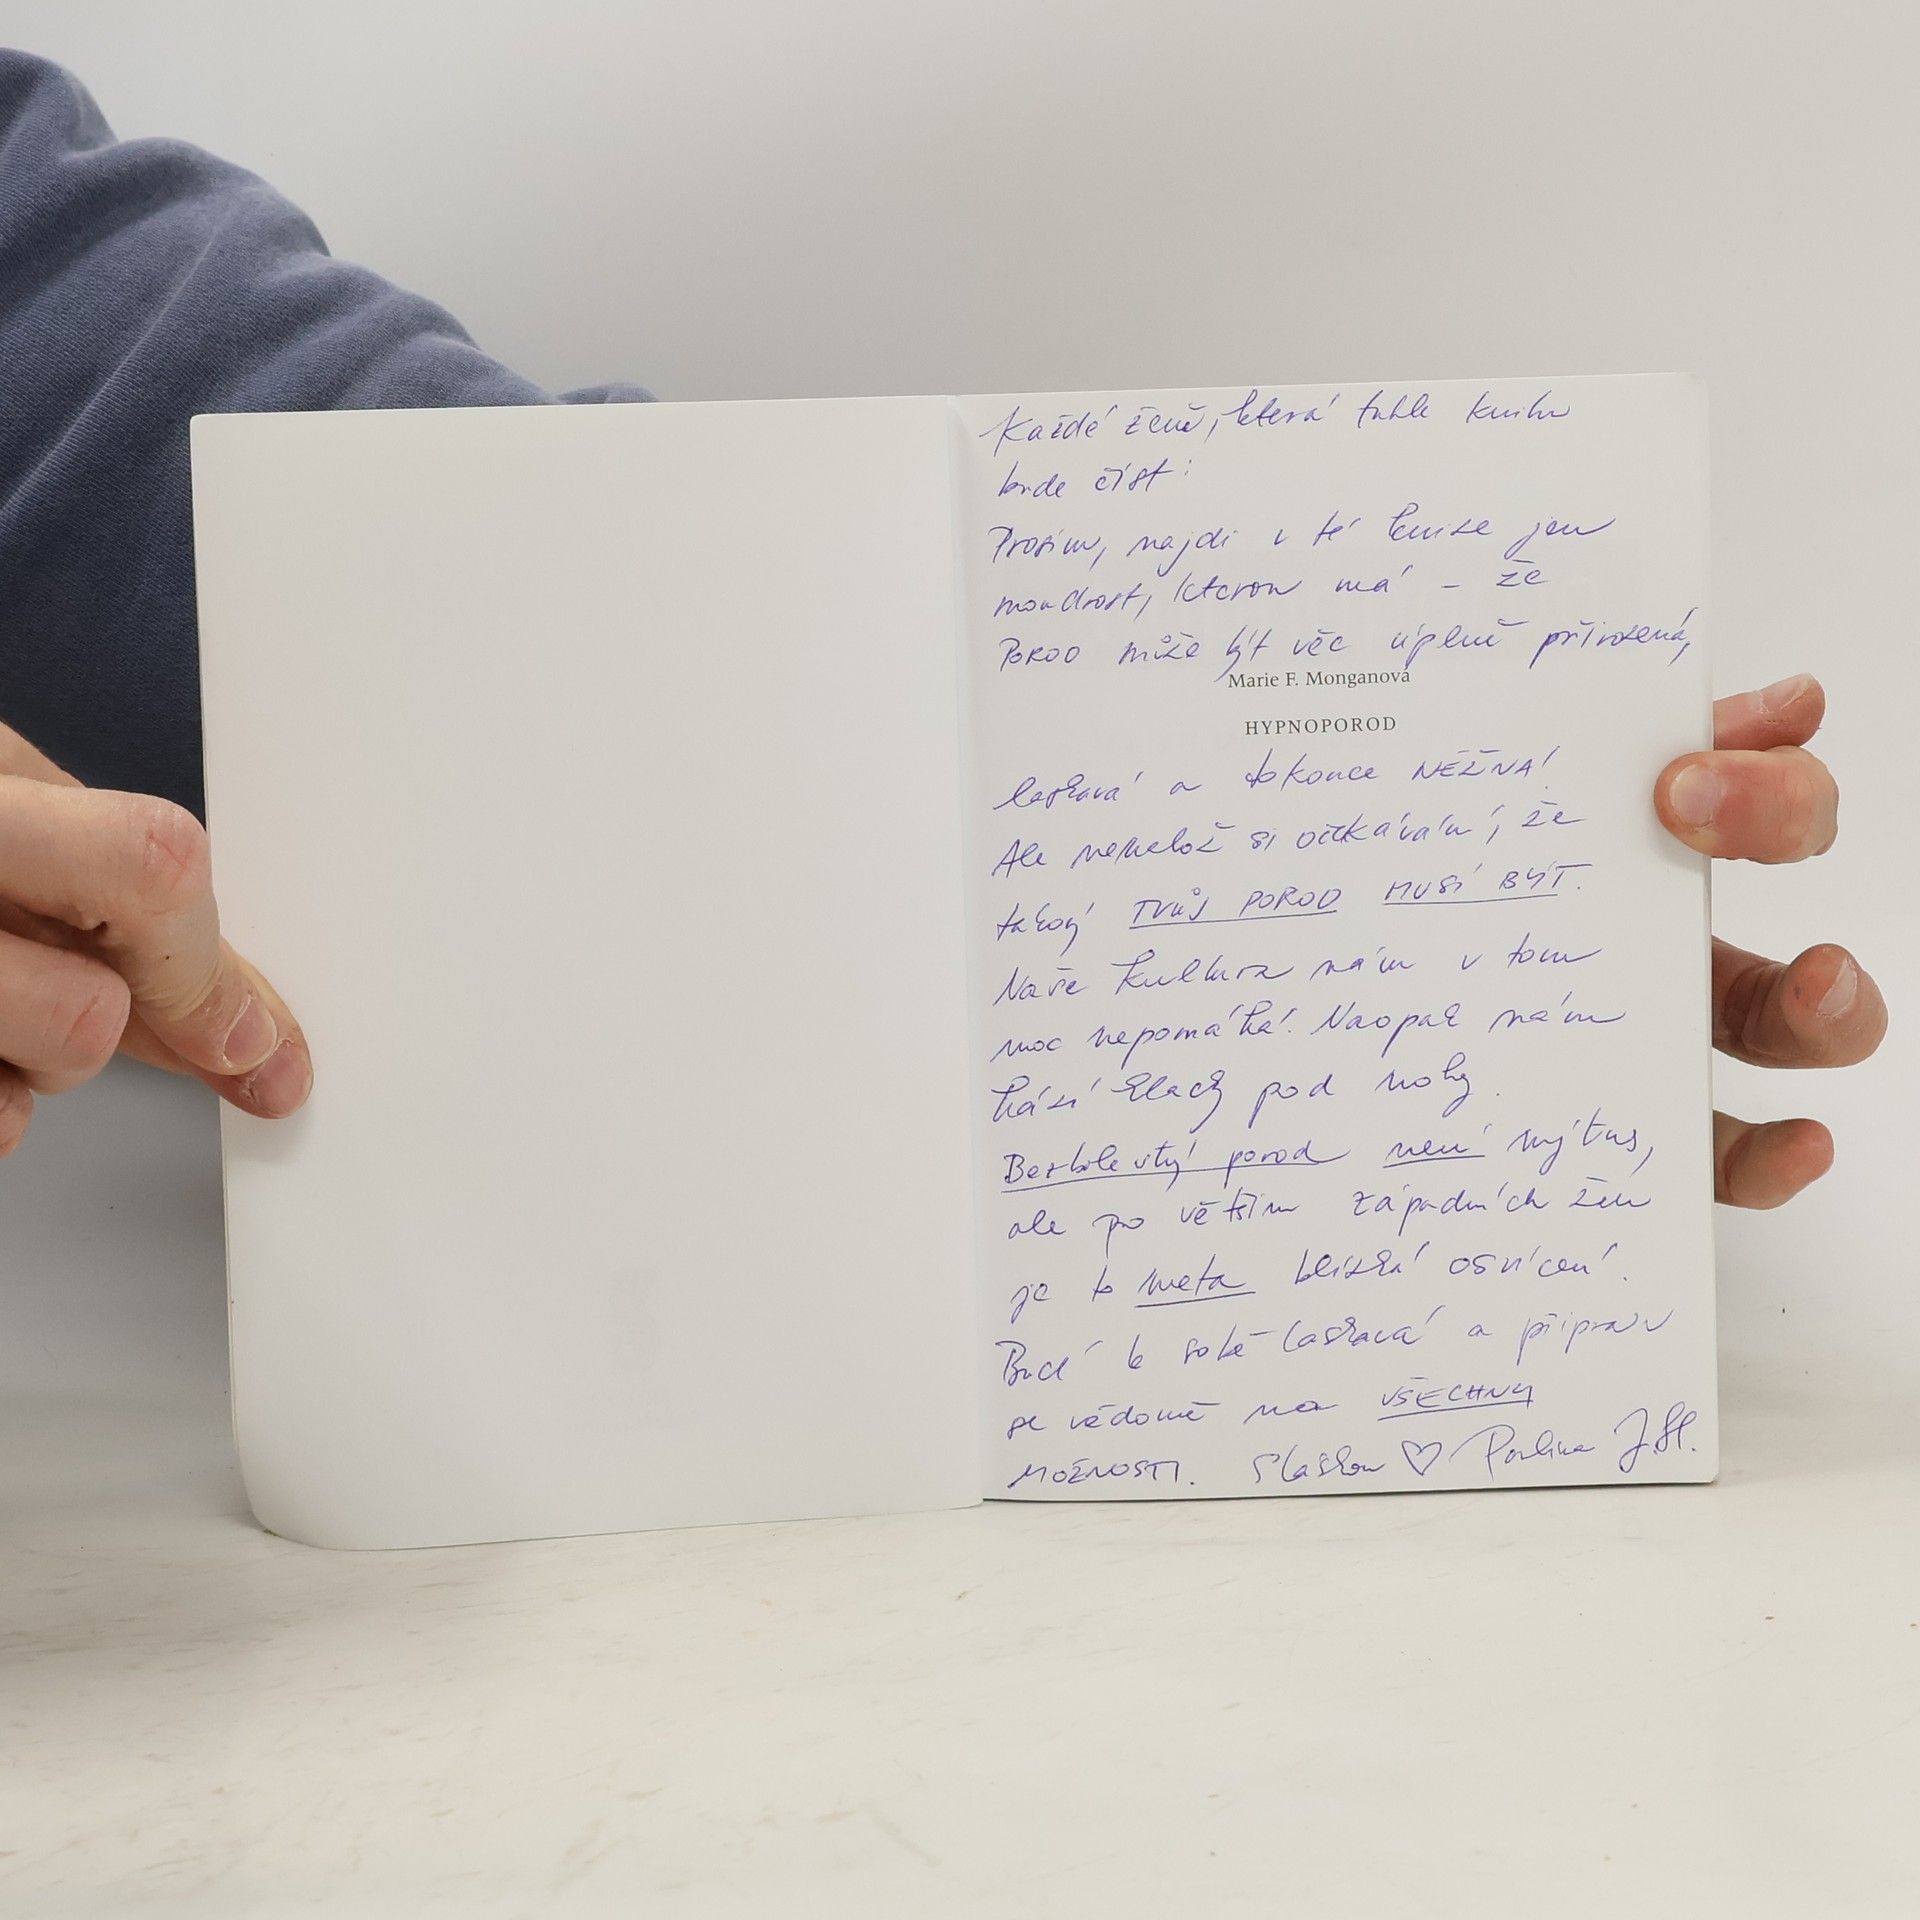 Každé ženě, která tuhle knihu
bude číst:
Prosím, najdi v té knize jen
moudrost, kterou má – že
POROD může být věc úplně přirozená,
Marie F. Monganová
HYPNOPOROD
laskavá a dokonce NĚŽNÁ!
Ale neklaď si očekávání, že
takový TVŮJ POROD MUSÍ BÝT.
Naše kultura nám v tom
moc nepomáhá. Naopak nám
hází klacky pod nohy.
Bezbolestný porod není mýtus,
ale pro většinu západních žen
je to meta blízká osvícení.
Buď k sobě laskavá a připrav
se vědomě na VŠECHNY
MOŽNOSTI. S láskou ♡ Pavlína J.H.